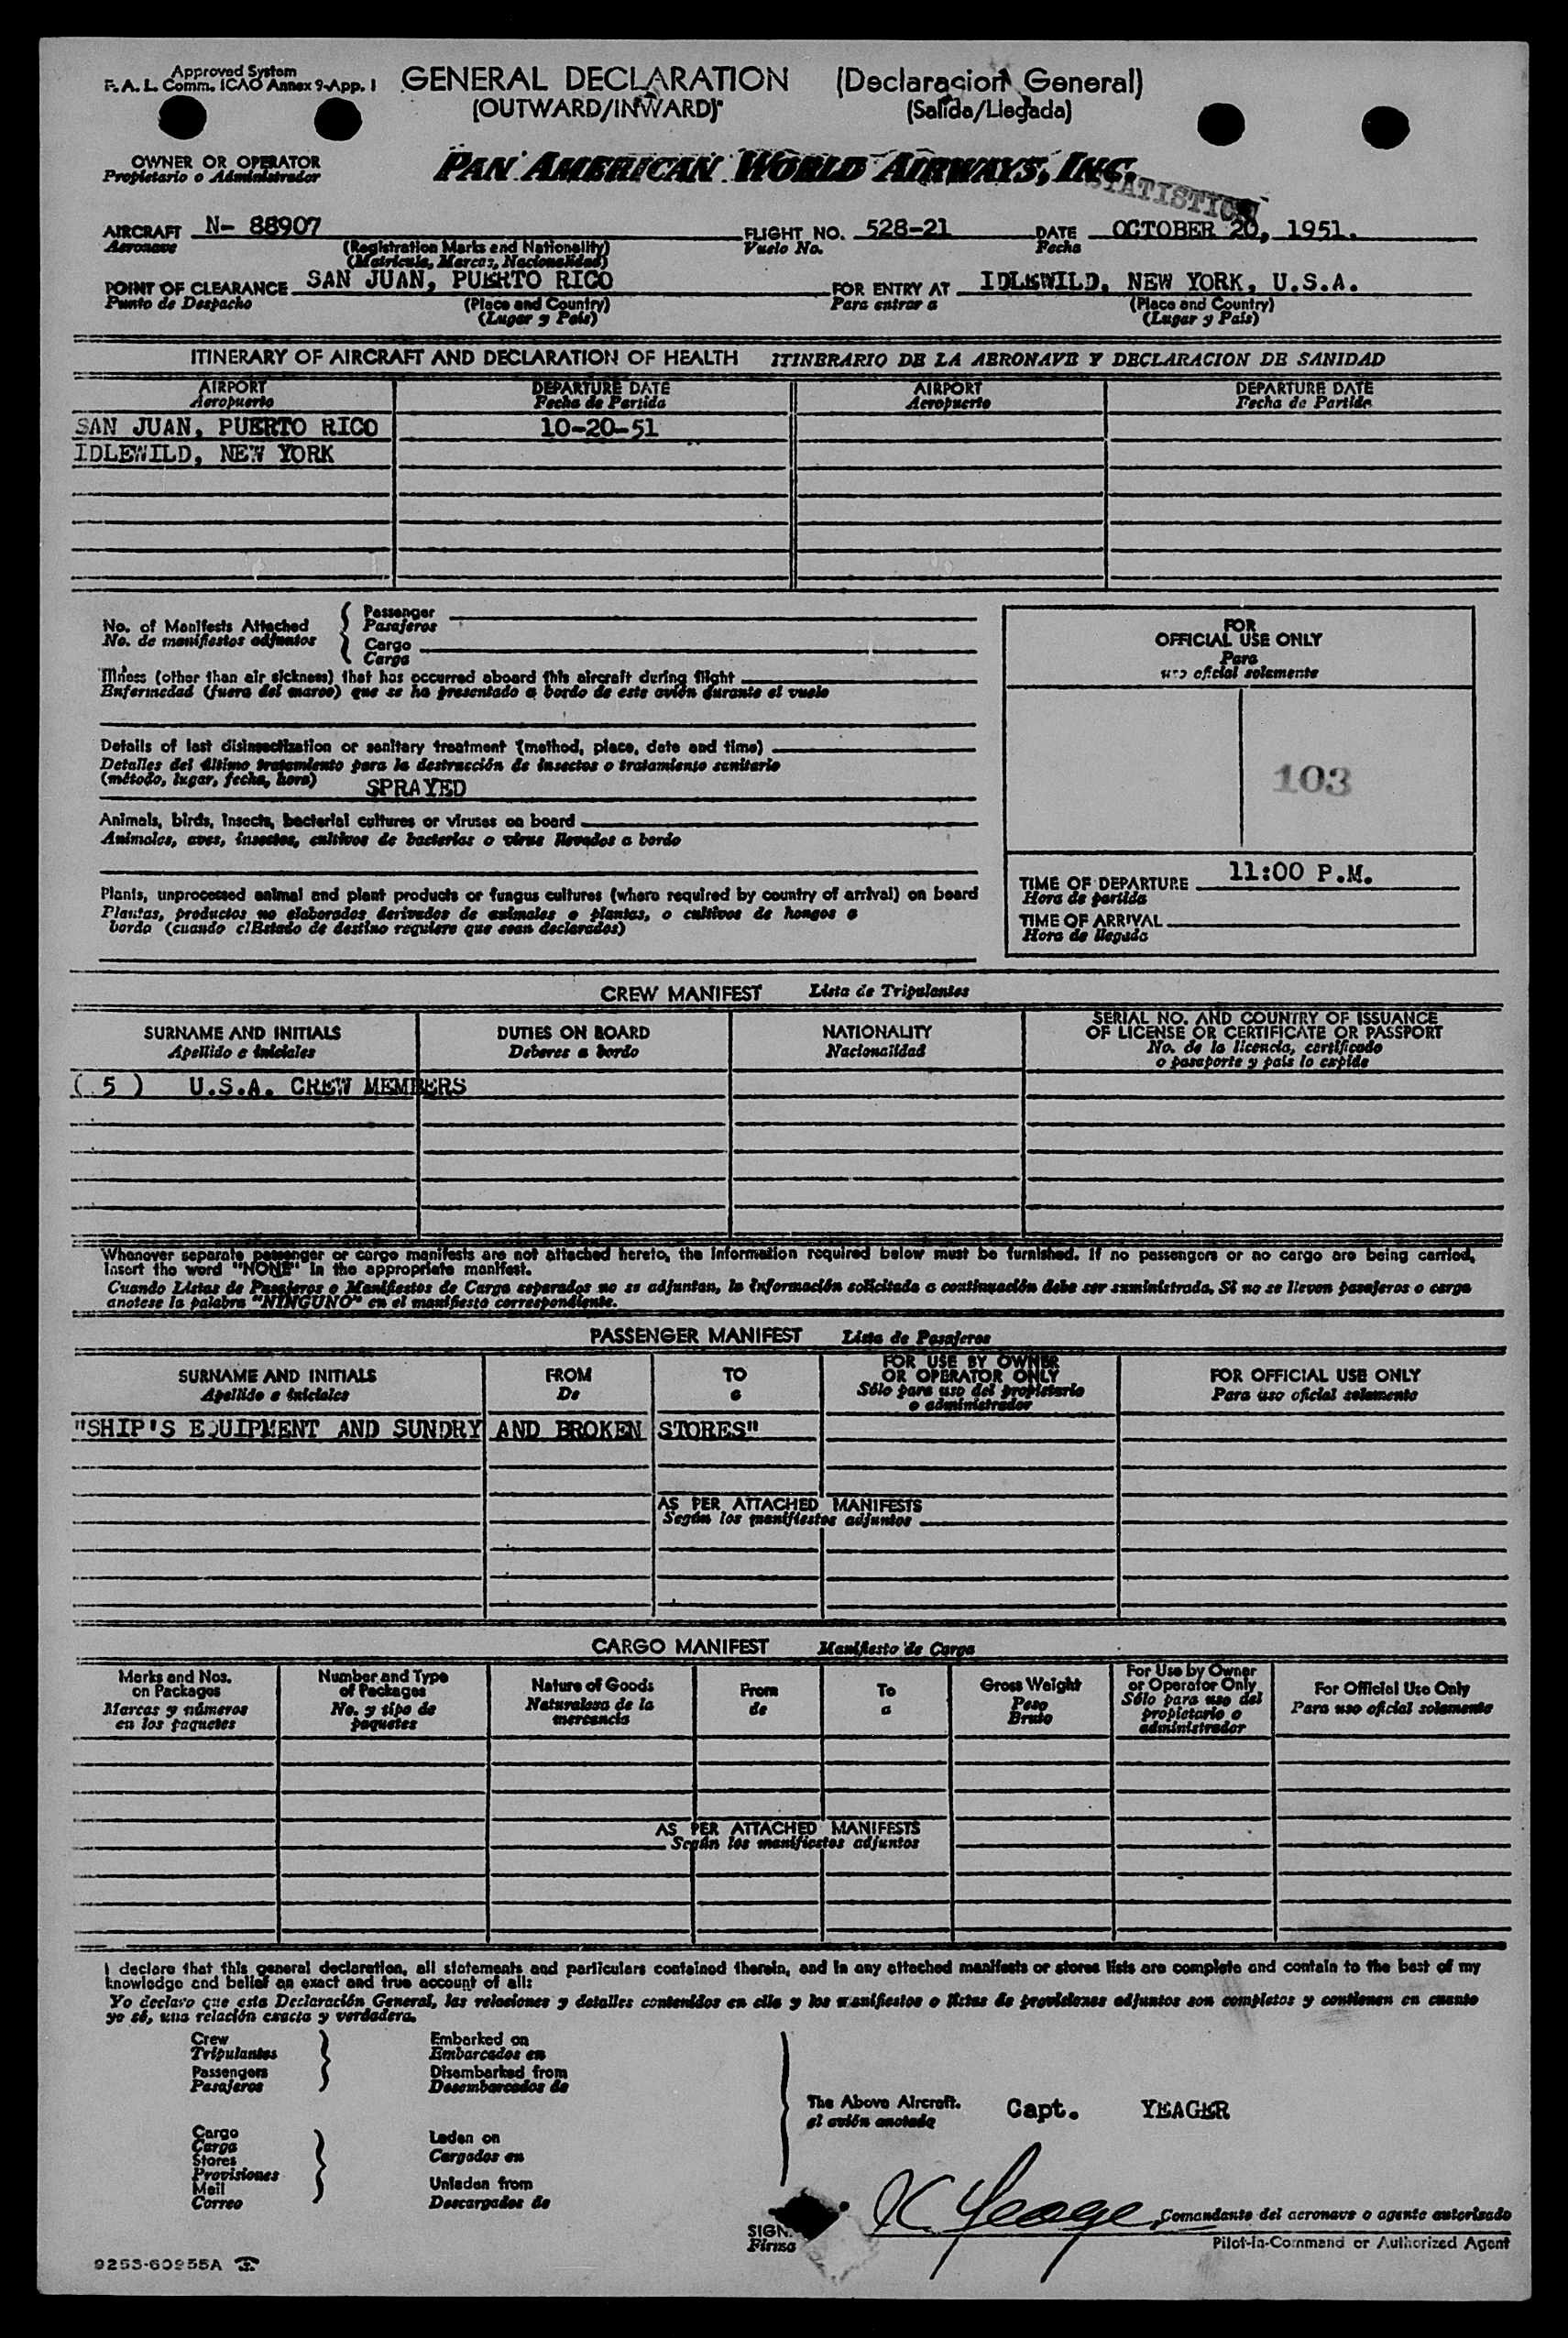 Approved System
F. A. L. Comm. ICAO Annex 9-App. 1
GENERAL DECLARATION (Declaracion General)
(OUTWARD/INWARD) (Salida/Llegada)
OWNER OR OPERATOR
Propietario o Administrador
PAN AMERICAN WORLD AIRWAYS, INC.
STATISTICS
AIRCRAFT N- 88907 FLIGHT NO. 528-21 DATE OCTOBER 20, 1951.
Aeronave (Registration Marks and Nationality) Vuelo No. Fecha
(Matricula, Marcas, Nacionalidad)
POINT OF CLEARANCE SAN JUAN, PUERTO RICO FOR ENTRY AT IDLEWILD, NEW YORK, U.S.A.
Punto de Despacho (Place and Country) Para entrar a (Place and Country)
(Lugar y País) (Lugar y País)
ITINERARY OF AIRCRAFT AND DECLARATION OF HEALTH ITINERARIO DE LA AERONAVE Y DECLARACION DE SANIDAD
AIRPORT DEPARTURE DATE AIRPORT DEPARTURE DATE
Aeropuerto Fecha de Partida Aeropuerto Fecha de Partida
SAN JUAN, PUERTO RICO 10-20-51
IDLEWILD, NEW YORK
No. of Manifests Attached
No. de manifiestos adjuntos
Passenger
Pasajeros
Cargo
Carga
Illness (other than air sickness) that has occurred aboard this aircraft during flight
Enfermedad (fuera del mareo) que se ha presentado a bordo de este avión durante el vuelo
Details of last disinsectization or sanitary treatment (method, place, date and time)
Detalles del último tratamiento para la destrucción de insectos o tratamiento sanitario
(método, lugar, fecha, hora) SPRAYED
Animals, birds, insects, bacterial cultures or viruses on board
Animales, aves, insectos, cultivos de bacterias o virus llevados a bordo
Plants, unprocessed animal and plant products or fungus cultures (where required by country of arrival) on board
Plantas, productos no elaborados derivados de animales o plantas, o cultivos de hongos a
bordo (cuando el Estado de destino requiere que sean declarados)
FOR
OFFICIAL USE ONLY
Para
uso oficial solamente
103
TIME OF DEPARTURE 11:00 P.M.
Hora de partida
TIME OF ARRIVAL
Hora de llegada
CREW MANIFEST Lista de Tripulantes
SURNAME AND INITIALS DUTIES ON BOARD NATIONALITY SERIAL NO. AND COUNTRY OF ISSUANCE
OF LICENSE OR CERTIFICATE OR PASSPORT
Apellido e iniciales Deberes a bordo Nacionalidad No. de la licencia, certificado
o pasaporte y país lo expide
( 5 ) U.S.A. CREW MEMBERS
Whenever separate passenger or cargo manifests are not attached hereto, the information required below must be furnished. If no passengers or no cargo are being carried,
insert the word "NONE" in the appropriate manifest.
Cuando Listas de Pasajeros o Manifiestos de Carga separados no se adjuntan, la información solicitada a continuación debe ser suministrada. Si no se lleven pasajeros o carga
anotese la palabra "NINGUNO" en el manifiesto correspondiente.
PASSENGER MANIFEST Lista de Pasajeros
SURNAME AND INITIALS FROM TO FOR USE BY OWNER
OR OPERATOR ONLY FOR OFFICIAL USE ONLY
Apellido e iniciales De a Sólo para uso del propietario
o administrador Para uso oficial solamente
"SHIP'S EQUIPMENT AND SUNDRY AND BROKEN STORES"
AS PER ATTACHED MANIFESTS
Según los manifiestos adjuntos
CARGO MANIFEST Manifiesto de Carga
Marks and Nos.
on Packages
Marcas y números
en los paquetes
Number and Type
of Packages
No. y tipo de
paquetes
Nature of Goods
Naturaleza de la
mercancía
From
de
To
a
Gross Weight
Peso
Bruto
For Use by Owner
or Operator Only
Sólo para uso del
propietario o
administrador
For Official Use Only
Para uso oficial solamente
AS PER ATTACHED MANIFESTS
Según los manifiestos adjuntos
I declare that this general declaration, all statements and particulars contained therein, and in any attached manifests or stores lists are complete and contain to the best of my
knowledge and belief an exact and true account of all:
Yo declaro que esta Declaración General, las relaciones y detalles contenidos en ella y los manifiestos o listas de provisiones adjuntos son completos y contienen en cuanto
yo sé, una relación exacta y verdadera.
Crew Embarked on
Tripulantes Embarcados en
Passengers Disembarked from
Pasajeros Desembarcados de
The Above Aircraft. Capt. YEAGER
el avión anotado
Cargo Laden on
Carga Cargados en
Stores
Provisiones
Mail Unladen from
Correo Descargados de
SIGN.
Firma
K Yeager
Comandante del aeronave o agente autorizado
Pilot-in-Command or Authorized Agent
9253-60955A